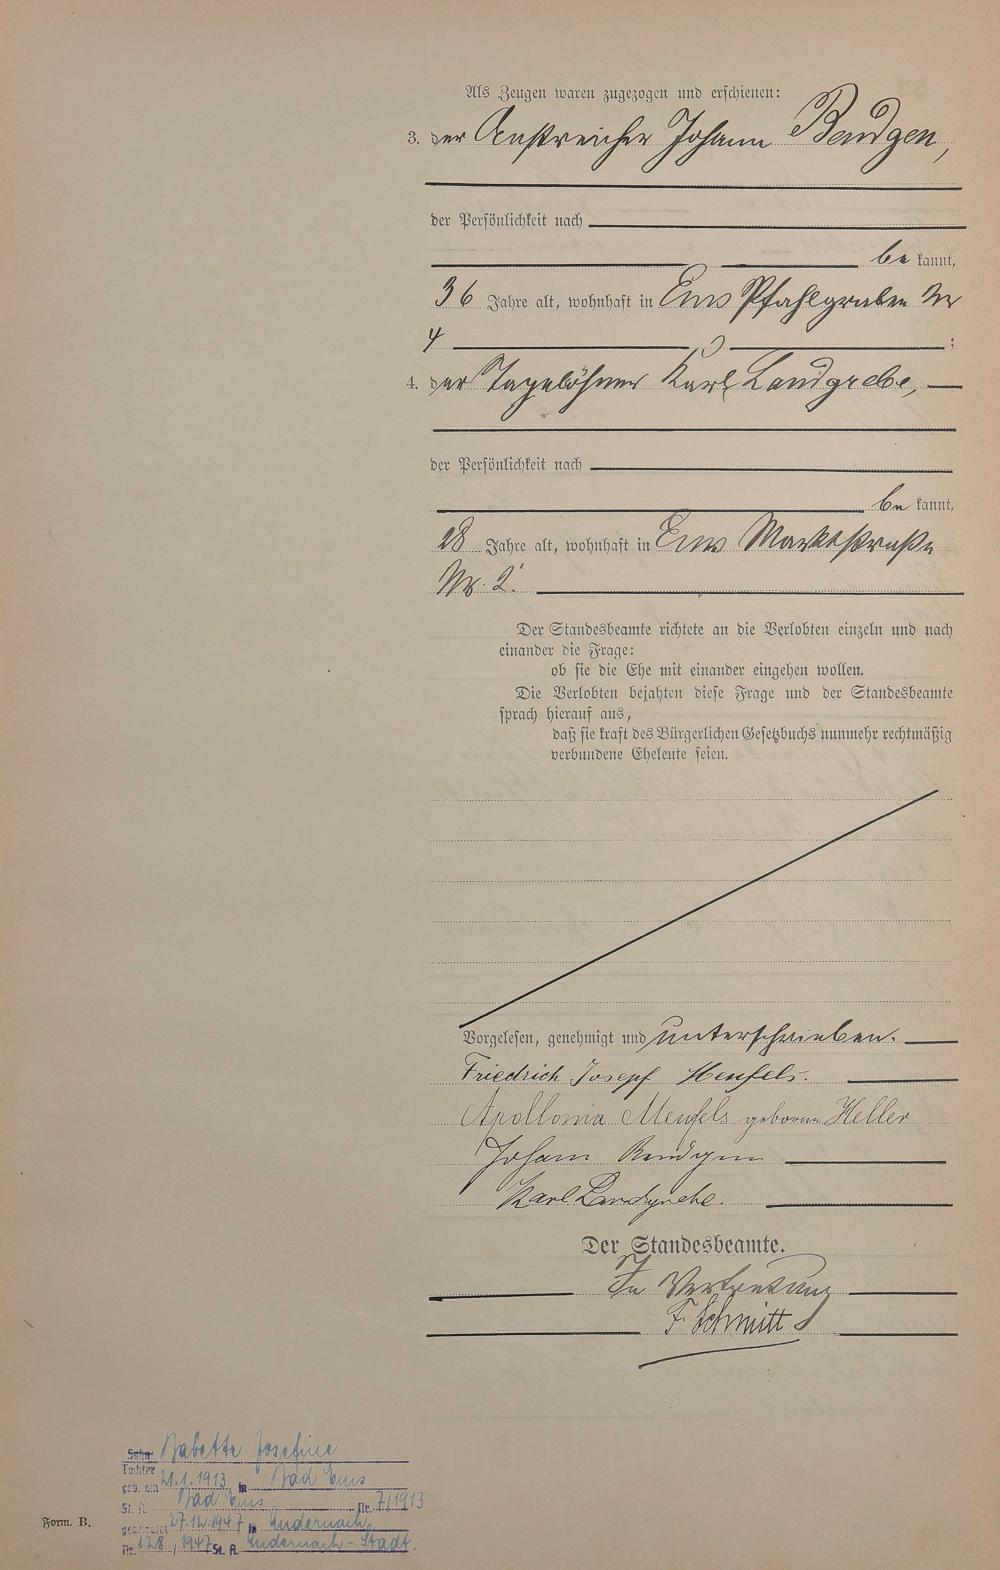 Als Zeugen waren zugezogen und erschienen:
3. der Anstreicher Johann Bendgen,
der Persönlichkeit nach
be kannt,
36 Jahre alt, wohnhaft in Ems Pfahlgraben Nr
4 ;
4. der Tagelöhner Karl Landgrebe,
der Persönlichkeit nach
be kannt,
28 Jahre alt, wohnhaft in Ems Marktstraße
Nr. 2.
Der Standesbeamte richtete an die Verlobten einzeln und nach
einander die Frage:
ob sie die Ehe mit einander eingehen wollen.
Die Verlobten bejahten diese Frage und der Standesbeamte
sprach hierauf aus,
daß sie kraft des Bürgerlichen Gesetzbuchs nunmehr rechtmäßig
verbundene Eheleute seien.
Vorgelesen, genehmigt und unterschrieben.
Friedrich Josepf Menfels.
Apollonia Menfels geborne Heller
Johann Bendgen
Karl Landgrebe.
Der Standesbeamte.
In Vertretung
F. Schmitt
Sohn Babette Josefine
Tochter
geb. am 21.1.1913 in Bad Ems
St. A. Bad Ems Nr. 7/1913
geheiratet 27.12.1947 in Andernach
Nr. 128/1947 St. A. Andernach-Stadt.
Form. B.